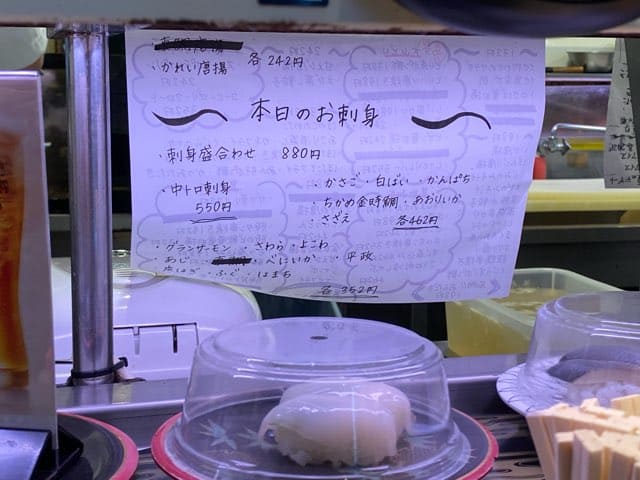 ・かれい唐揚 各242円
本日のお刺身
・刺身盛合わせ 880円
・中トロ刺身
550円
・かさご・白ばい・かんぱち
・ちかめ金時鯛・あおりいか
・さざえ 各462円
・グランサーモン ・さわら・よこわ
・あじ ・べにいか ・平政
・ふぐ・はまち
各352円